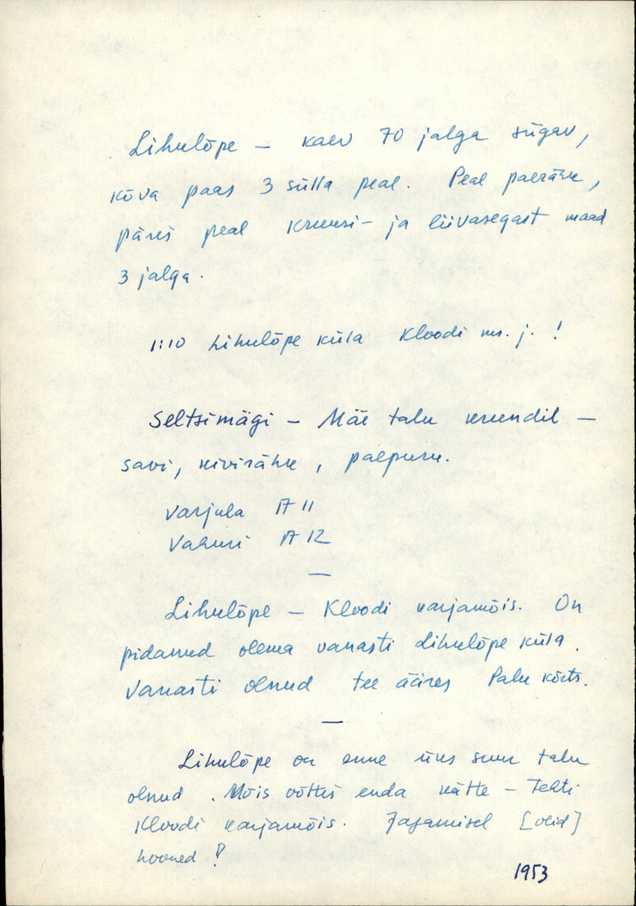 Lihulõpe – kaev 70 jalga sügav,
kõva paas 3 sülla peal. Peal paerähk,
päris peal kruusi- ja liivasegast maad
3 jalga.
1:10 Lihulõpe küla Kloodi ms. j. !
Seltsimägi – Mäe talu krundil –
savi, kivirähk, paepuru.
Varjula A 11
Vahuri A 12
—
Lihulõpe – Kloodi karjamõis. On
pidanud olema vanasti Lihulõpe küla.
Vanasti olnud tee ääres Palu kõrts.
—
Lihulõpe on enne üks suur talu
olnud. Mõis võttis enda kätte – Tehti
Kloodi karjamõis. Jagamisel [olid]
hooned !
1953